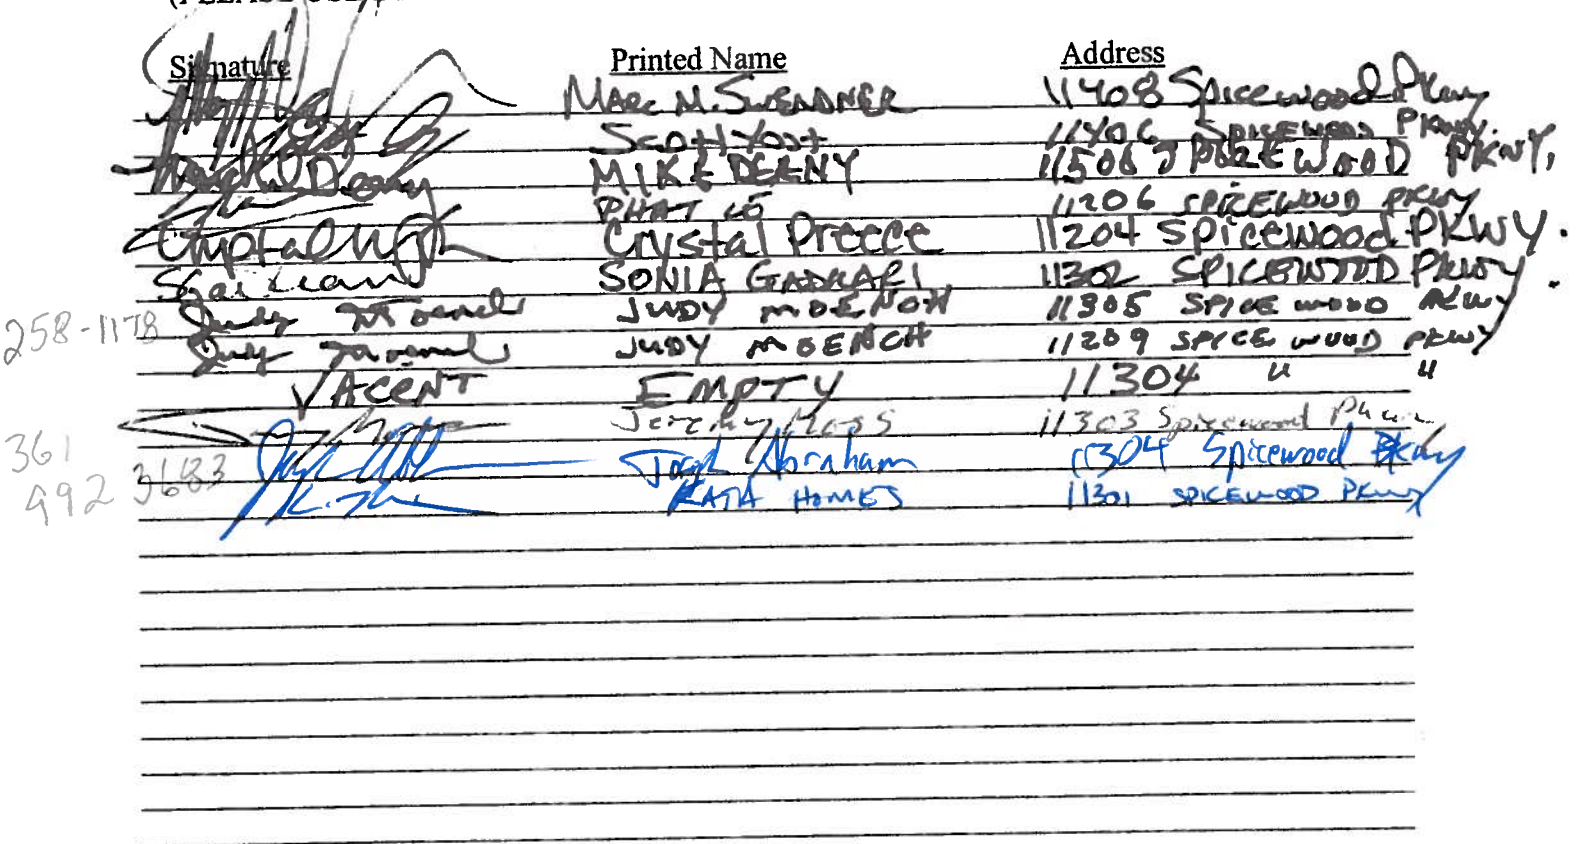 Signature Printed Name Address
Marc M. Swendner 11408 Spicewood Pkwy
Scott Yost 11406 SPICEWOOD PKWY
MIKE DEENY 11506 SPICEWOOD PKWY,
PHAT LE 11206 SPICEWOOD PKWY
Crystal Preece 11204 Spicewood PKWY.
SONIA GADKARI 11302 SPICEWOOD PKWY.
258-1178 Judy Moench JUDY MOENCH 11305 SPICEWOOD PKWY
Judy Moench JUDY MOENCH 11209 SPICEWOOD PKWY
VACENT EMPTY 11304 " "
Jeremy Moss 11303 Spicewood Pkwy
361 Joseph Abraham 11304 Spicewood Pkwy
992 3683 KATA HOMES 11301 SPICEWOOD PKWY